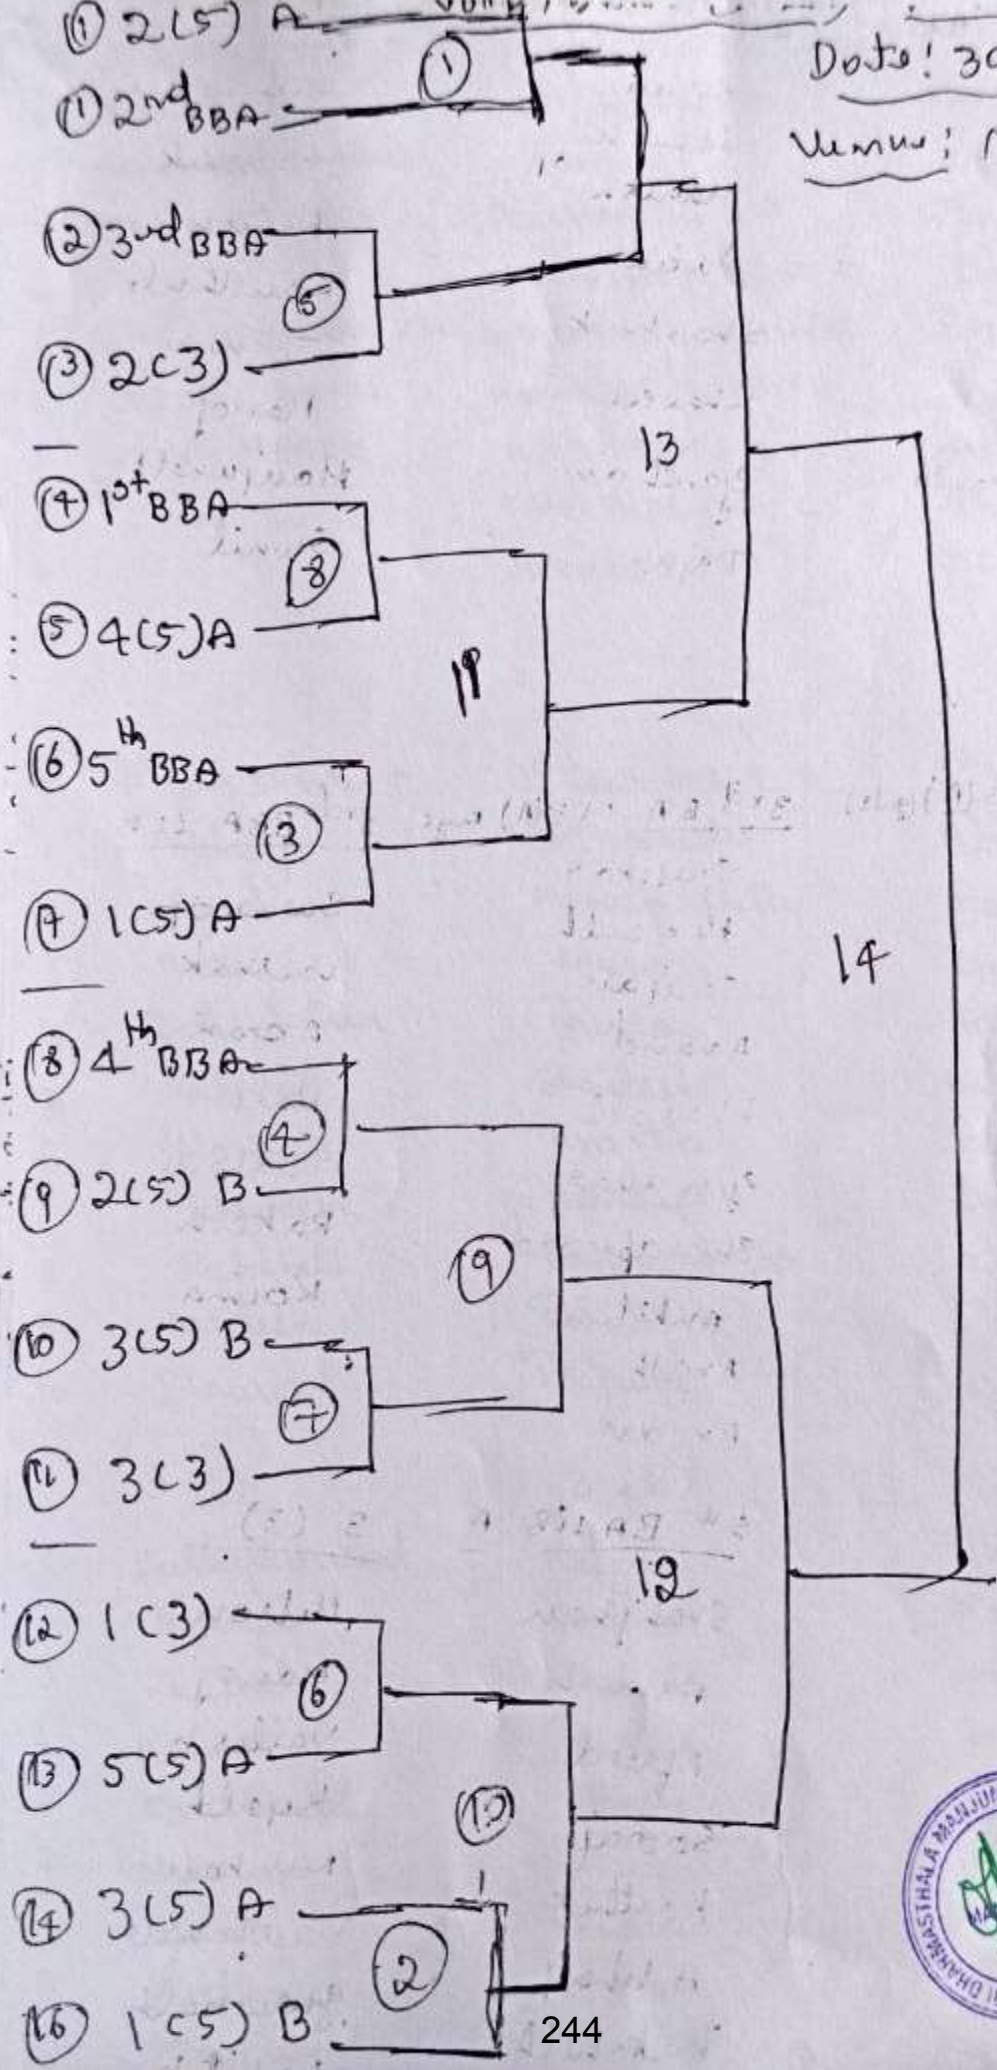 ① 2(5) A
①
Date: 30
① 2nd BBA
Venue:
② 3rd BBA
⑤
③ 2(3)
13
④ 1st BBA
⑧
⑤ 4(5) A
11
⑥ 5th BBA
③
⑦ 1(5) A
14
⑧ 4th BBA
④
⑨ 2(5) B
⑨
⑩ 3(5) B
⑦
⑪ 3(3)
12
⑫ 1(3)
⑥
⑬ 5(5) A
⑩
⑭ 3(5) A
②
1(5) B
244
DHARMASTHALA MANJUN